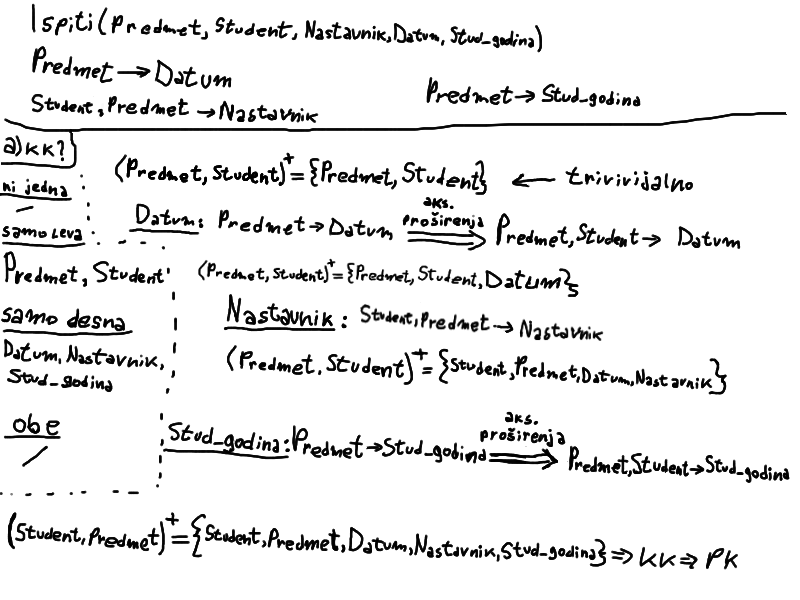 Ispiti(Predmet, Student, Nastavnik, Datum, Stud_godina)
Predmet → Datum
Student, Predmet → Nastavnik
Predmet → Stud_godina
a) KK?
ni jedna
/
samo leva
Predmet, Student
samo desna
Datum, Nastavnik,
Stud_godina
obe
/
(Predmet, Student)⁺ = {Predmet, Student} ← trivivijalno
Datum: Predmet → Datum aks. proširenja ⇒ Predmet, Student → Datum
(Predmet, Student)⁺ = {Predmet, Student, Datum}
Nastavnik: Student, Predmet → Nastavnik
(Predmet, Student)⁺ = {Student, Predmet, Datum, Nastavnik}
Stud_godina: Predmet → Stud_godina aks. proširenja ⇒ Predmet, Student → Stud_godina
(Student, Predmet)⁺ = {Student, Predmet, Datum, Nastavnik, Stud_godina} ⇒ KK ⇒ PK